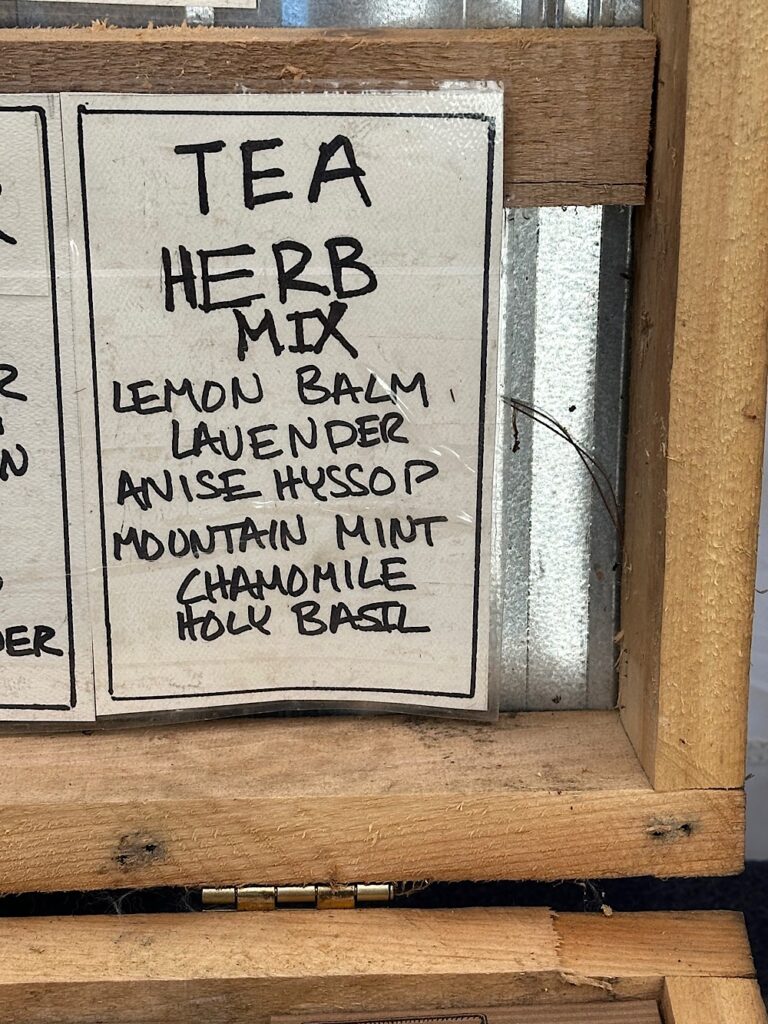 TEA
HERB
MIX
LEMON BALM
LAVENDER
ANISE HYSSOP
MOUNTAIN MINT
CHAMOMILE
HOLY BASIL